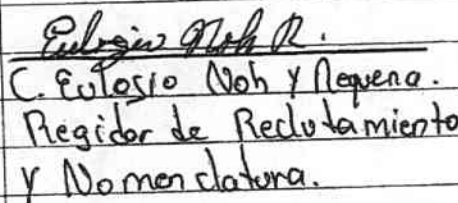 Eulogio Noh R.
C. Eulosio Noh y Requena.
Regidor de Reclutamiento
y Nomenclatura.